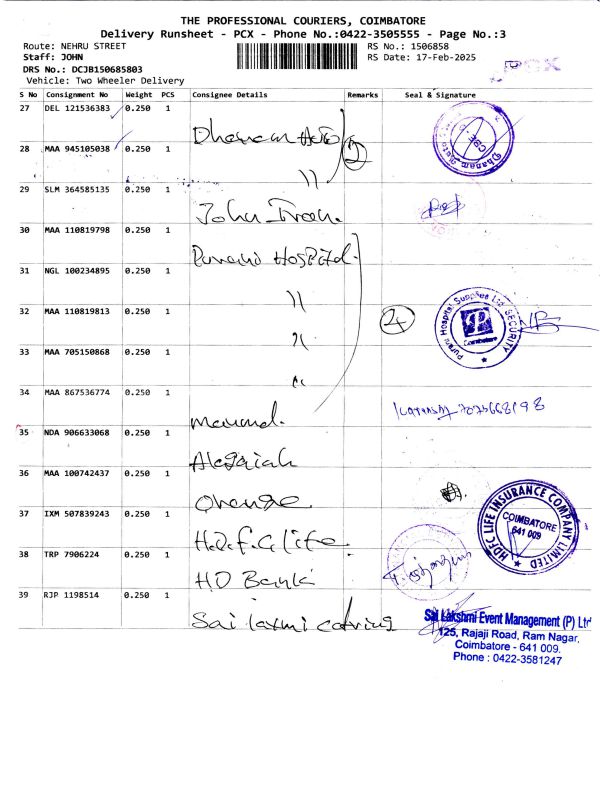 THE PROFESSIONAL COURIERS, COIMBATORE
Delivery Runsheet - PCX - Phone No.:0422-3505555 - Page No.:3
Route: NEHRU STREET RS No.: 1506858
Staff: JOHN RS Date: 17-Feb-2025
DRS No.: DCJB150685803
PCX
Vehicle: Two Wheeler Delivery
S No Consignment No Weight PCS Consignee Details Remarks Seal & Signature
27 DEL 121536383 0.250 1
28 MAA 945105038 0.250 1 2
29 SLM 364585135 0.250 1 John
30 MAA 110819798 0.250 1 Hospital
31 NGL 100234895 0.250 1 "
32 MAA 110819813 0.250 1 " 4
Purani Hospital Supplies Ltd SECURITY
Coimbatore
33 MAA 705150868 0.250 1 "
34 MAA 867536774 0.250 1 7075668198
35 NDA 906633068 0.250 1
36 MAA 100742437 0.250 1 Orange
37 IXM 507839243 0.250 1 H.D.F.C life
HDFC LIFE INSURANCE COMPANY LIMITED
COIMBATORE
641 009
38 TRP 7906224 0.250 1 HD Bank
39 RJP 1198514 0.250 1 Sai laxmi
Sai Lakshmi Event Management (P) Ltd
125, Rajaji Road, Ram Nagar,
Coimbatore - 641 009.
Phone : 0422-3581247